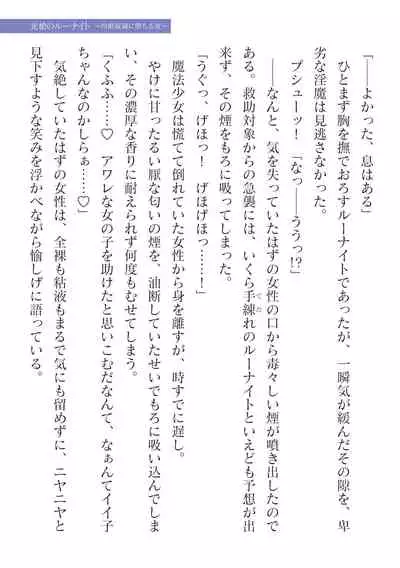 光槍のルーナイト ～四姫祓滅に堕ちる夜～
「――よかった、息はある」
ひとまず胸を撫でおろすルーナイトであったが、一瞬気が緩んだその隙を、卑
劣な淫魔は見逃さなかった。
プシューッ！　「なっ――ううっ!?」
――なんと、気を失っていたはずの女性の口から毒々しい煙が噴き出したので
ある。救助対象からの急襲には、いくら手練れのルーナイトといえども予想が出
来ず、その煙をもろに吸ってしまった。
「うぐっ、げほっ！　げほげほっ……！」
魔法少女は慌てて倒れていた女性から身を離すが、時すでに遅し。
やけに甘ったるい厭な匂いの煙を、油断していたせいでもろに吸い込んでしま
い、その濃厚な香りに耐えられず何度もむせてしまう。
「くふふ……♡　アワレな女の子を助けたと思いこむだなんて、なぁんてイイ子
ちゃんなのかしらぁ……♡」
気絶していたはずの女性は、全裸も粘液もまるで気にも留めずに、ニヤニヤと
見下すような笑みを浮かべながら愉しげに語っている。